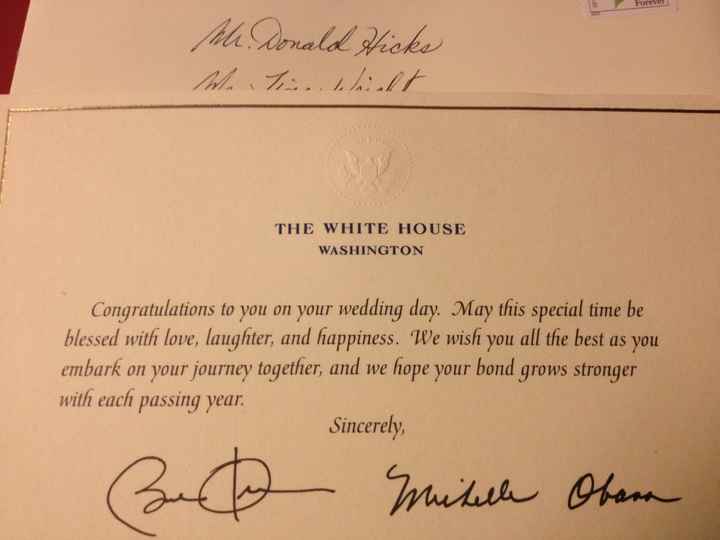 Forever
Mr. Donald Hicks
THE WHITE HOUSE
WASHINGTON
Congratulations to you on your wedding day. May this special time be
blessed with love, laughter, and happiness. We wish you all the best as you
embark on your journey together, and we hope your bond grows stronger
with each passing year.
Sincerely,
Michelle Obama